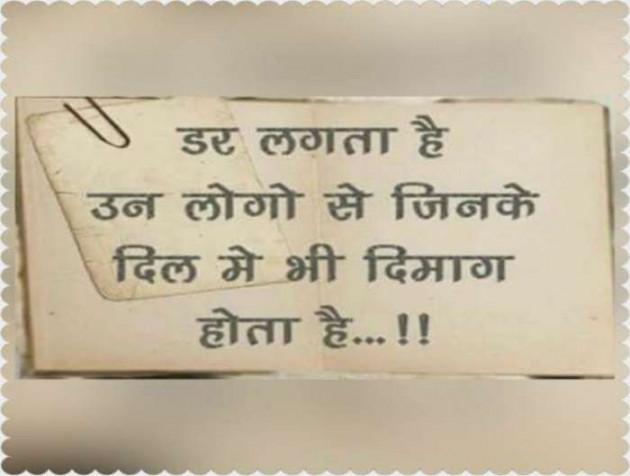 डर लगता है
उन लोगो से जिनके
दिल मे भी दिमाग
होता है...!!